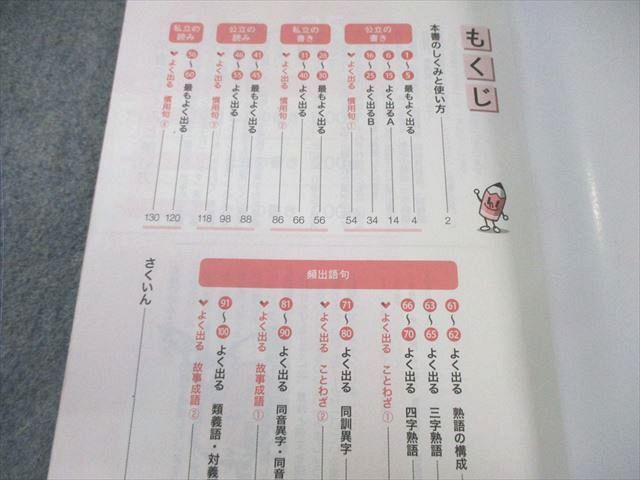 もくじ
本書のしくみと使い方 2
公立の書き
1〜5 最もよく出る 4
6〜15 よく出るA 14
16〜25 よく出るB 34
よく出る 慣用句① 54
私立の書き
26〜30 最もよく出る 56
31〜40 よく出る 66
よく出る 慣用句② 86
公立の読み
41〜45 最もよく出る 88
46〜55 よく出る 98
よく出る 慣用句③ 118
私立の読み
56〜60 最もよく出る 120
よく出る 慣用句④ 130
頻出語句
61〜62 よく出る 熟語の構成
63〜65 よく出る 三字熟語
66〜70 よく出る 四字熟語
よく出る ことわざ①
71〜80 よく出る 同訓異字
よく出る ことわざ②
81〜90 よく出る 同音異字・同音
よく出る 故事成語①
91〜100 よく出る 類義語・対義
よく出る 故事成語②
さくいん